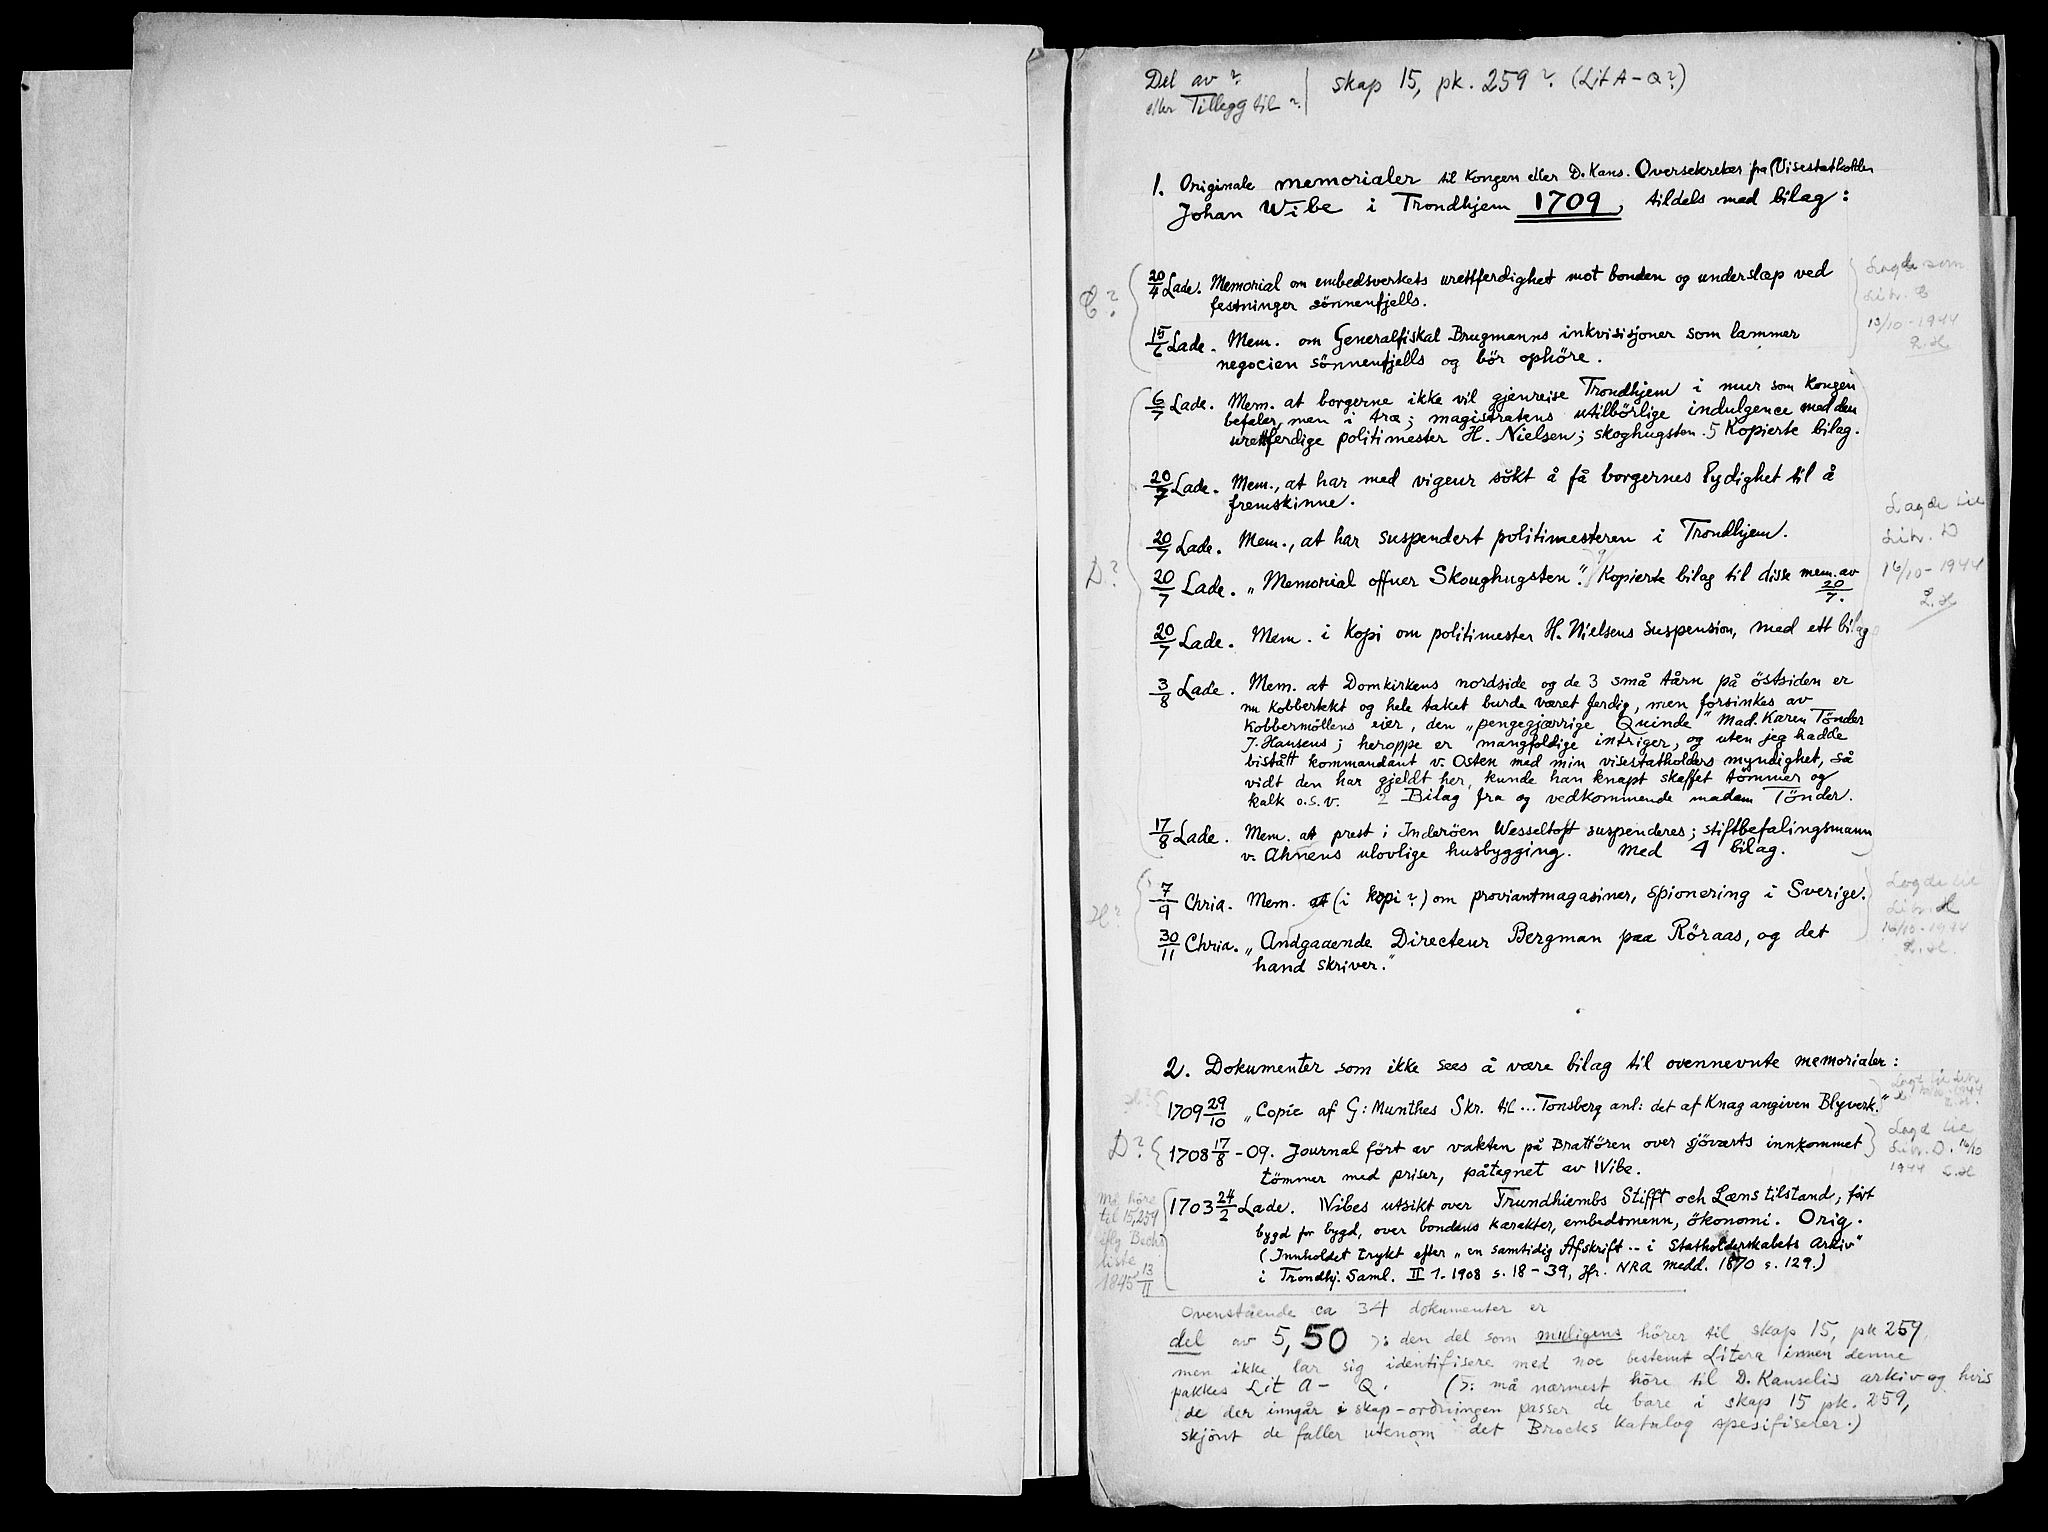 Del av ?
eller Tillegg til ?
skap 15, pk. 259 ? (Lit A - Q ?)
1. Originale memorialer til Kongen eller D. Kans. Oversekretær fra Visestatholder
Johan Wibe i Trondhjem 1709, tildels med bilag:
C?
20/4 Lade. Memorial om embedsverkets urettferdighet mot bonden og underslæp ved
festninger sönnenfjells.
15/6 Lade. Mem. om Generalfiskal Brugmanns inkvisisjoner som lammer
negocien sönnenfjells og bör ophöre.
Lagde som
Litr. C
13/10-1944
L.H.
D?
6/7 Lade. Mem. at borgerne ikke vil gjenreise Trondhjem i mur som Kongen
befaler, men i træ; magistratens utilbörlige indulgence med den
urettferdige politimester H. Nielsen; skoghugsten. 5 Kopierte bilag.
20/7 Lade. Mem., at har med vigeur sökt å få borgernes lydighet til å
fremskinne.
20/7 Lade. Mem., at har suspendert politimesteren i Trondhjem.
20/7 Lade. „Memorial offuer Skoughugsten." 9 Kopierte bilag til disse mem. av
20/7.
20/7 Lade. Mem. i Kopi om politimester H. Nielsens suspension, med ett bilag
3/8 Lade. Mem. at Domkirkens nordside og de 3 små tårn på östsiden er
nu kobbertekt og hele taket burde været ferdig, men forsinkes av
Kobbermöllens eier, den „pengegjærrige Quinde" Mad. Karen Tönder
J. Hansens; heroppe er mangfoldige intriger, og uten jeg hadde
bistått kommandant v. Osten med min visestatholders myndighet, så
vidt den har gjeldt her, kunde han knapt skaffet tömmer og
kalk o.s.v. 2 Bilag fra og vedkommende madam Tönder.
17/8 Lade. Mem. at prest i Inderöen Wesseltoft suspenderes; stiftbefalingsmann
v. Ahnens ulovlige husbygging. Med 4 bilag.
Lagde til
Litr. D
16/10-1944
L.H
H?
7/9 Chria. Mem. at (i kopi?) om proviantmagasiner, spionering i Sverige.
30/11 Chria. „Andgaaende Directeur Bergman paa Röraas, og det
hand skriver."
Lagde til
Litr. H
16/10-1944
L.H.
2. Dokumenter som ikke sees å være bilag til ovennevnte memorialer:
H?
1709 29/10 „Copie af G: Munthes Skr. til ... Tonsberg anl: det af Knag angiven Blyverk."
Lagt til Litr.
H 16/10 1944
L.H.
D?
1708 17/8 - 09. Journal fört av vakten på Brattören over sjöværts innkommet
tömmer med priser, påtegnet av Wibe.
Lagd til
Litr. D. 16/10
1944 L.H
1703 24/2 Lade. Wibes utsikt over Trundhiembs Stifft och Læns tilstand, fört
bygd for bygd, over bondens karakter, embedsmenn, ökonomi. Orig.
(Innholdet trykt efter „en samtidig Afskrift .. i Statholderskabets Arkiv"
i Trondhj. Saml. II 1. 1908 s. 18-39, jfr. NRA medd. 1870 s. 129.)
Må höre
til 15,259
iflg Bech's
liste
1845 13/11
Ovenstående ca 34 dokumenter er
del av 5,50 ɔ: den del som muligens hörer til skap 15, pk 259,
men ikke lar sig identifisere med noe bestemt Litera innen denne
pakkes Lit A - Q. (ɔ: må nærmest höre til D. Kanselis arkiv og hvis
de der inngår i skap-ordningen passer de bare i skap 15 pk. 259,
skjönt de faller utenom det Brocks Katalog spesifiserer.)